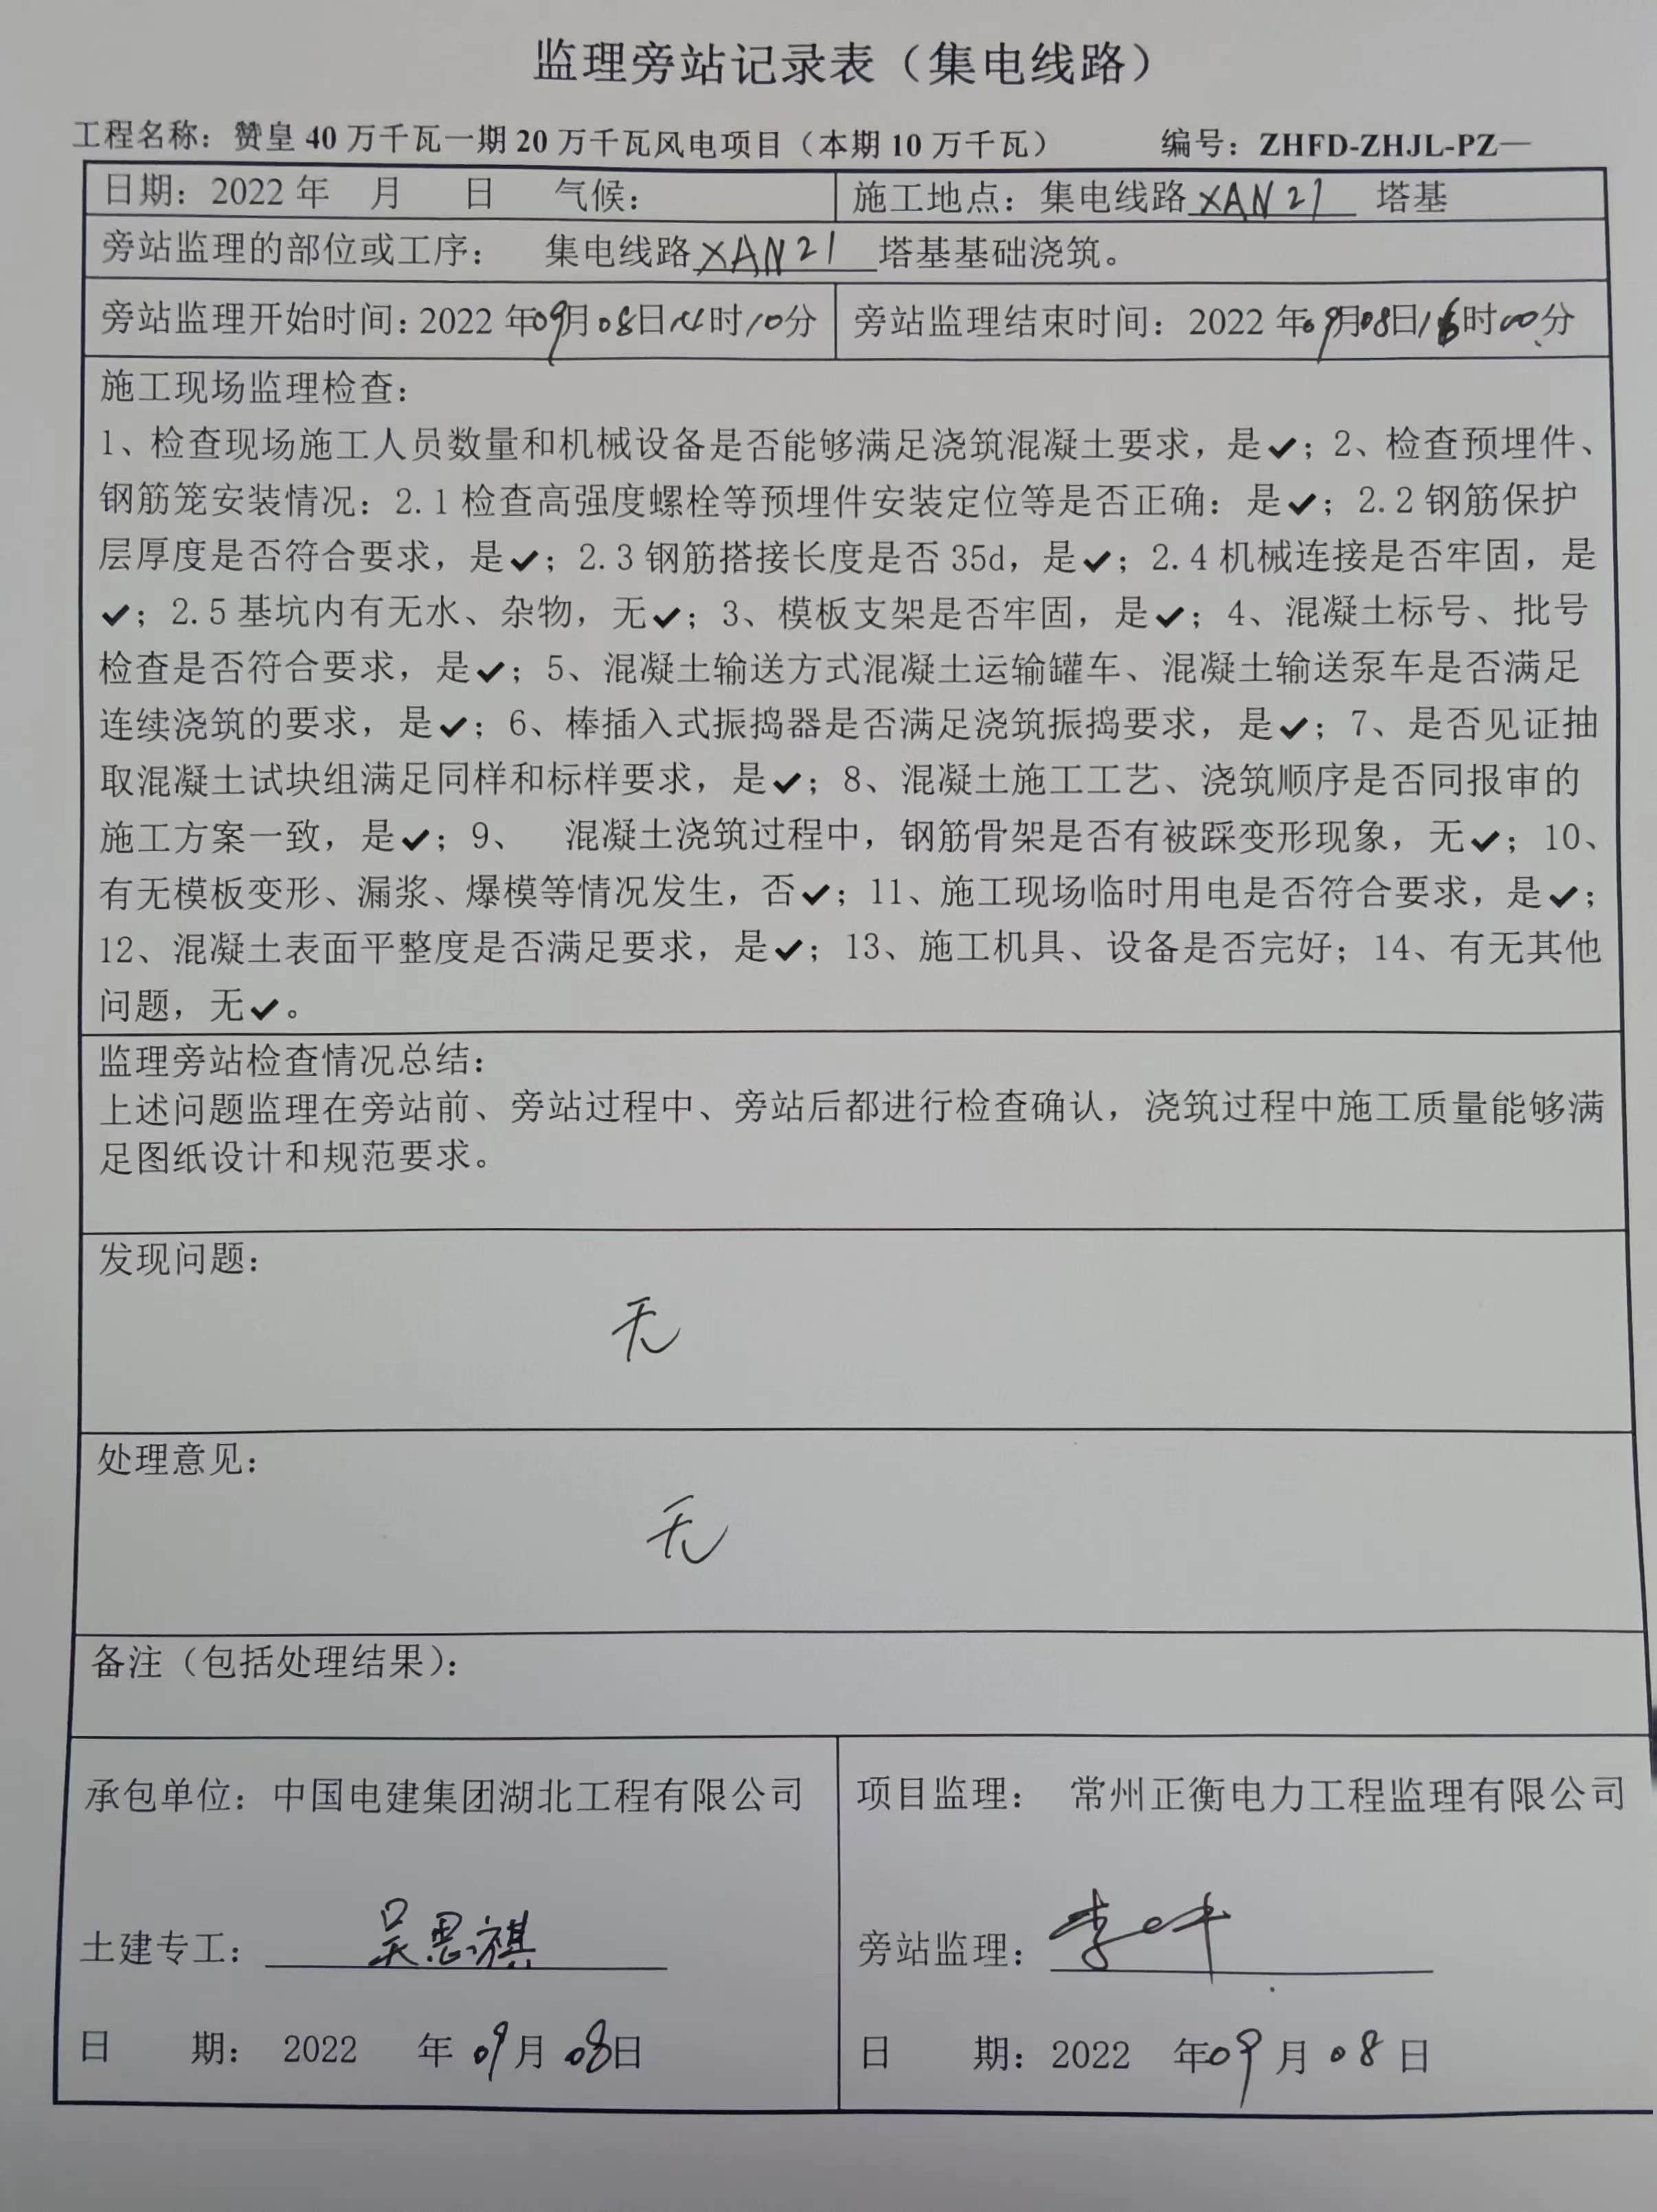 监理旁站记录表（集电线路）
工程名称：赞皇 40 万千瓦一期 20 万千瓦风电项目（本期 10 万千瓦） 编号：ZHFD-ZHJL-PZ—
日期：2022 年 月 日 气候： 施工地点：集电线路 XAN21 塔基
旁站监理的部位或工序： 集电线路 XAN21 塔基基础浇筑。
旁站监理开始时间：2022 年09月08日14时10分 旁站监理结束时间：2022 年09月08日16时00分
施工现场监理检查：
1、检查现场施工人员数量和机械设备是否能够满足浇筑混凝土要求，是✔；2、检查预埋件、
钢筋笼安装情况：2.1 检查高强度螺栓等预埋件安装定位等是否正确：是✔；2.2 钢筋保护
层厚度是否符合要求，是✔；2.3 钢筋搭接长度是否 35d，是✔；2.4 机械连接是否牢固，是
✔；2.5 基坑内有无水、杂物，无✔；3、模板支架是否牢固，是✔；4、混凝土标号、批号
检查是否符合要求，是✔；5、混凝土输送方式混凝土运输罐车、混凝土输送泵车是否满足
连续浇筑的要求，是✔；6、棒插入式振捣器是否满足浇筑振捣要求，是✔；7、是否见证抽
取混凝土试块组满足同样和标样要求，是✔；8、混凝土施工工艺、浇筑顺序是否同报审的
施工方案一致，是✔；9、 混凝土浇筑过程中，钢筋骨架是否有被踩变形现象，无✔；10、
有无模板变形、漏浆、爆模等情况发生，否✔；11、施工现场临时用电是否符合要求，是✔；
12、混凝土表面平整度是否满足要求，是✔；13、施工机具、设备是否完好；14、有无其他
问题，无✔。
监理旁站检查情况总结：
上述问题监理在旁站前、旁站过程中、旁站后都进行检查确认，浇筑过程中施工质量能够满
足图纸设计和规范要求。
发现问题：
无
处理意见：
无
备注（包括处理结果）：
承包单位：中国电建集团湖北工程有限公司 项目监理： 常州正衡电力工程监理有限公司
土建专工： 吴思祺 旁站监理： 李
日 期： 2022 年 09月 08日 日 期：2022 年09月 08 日